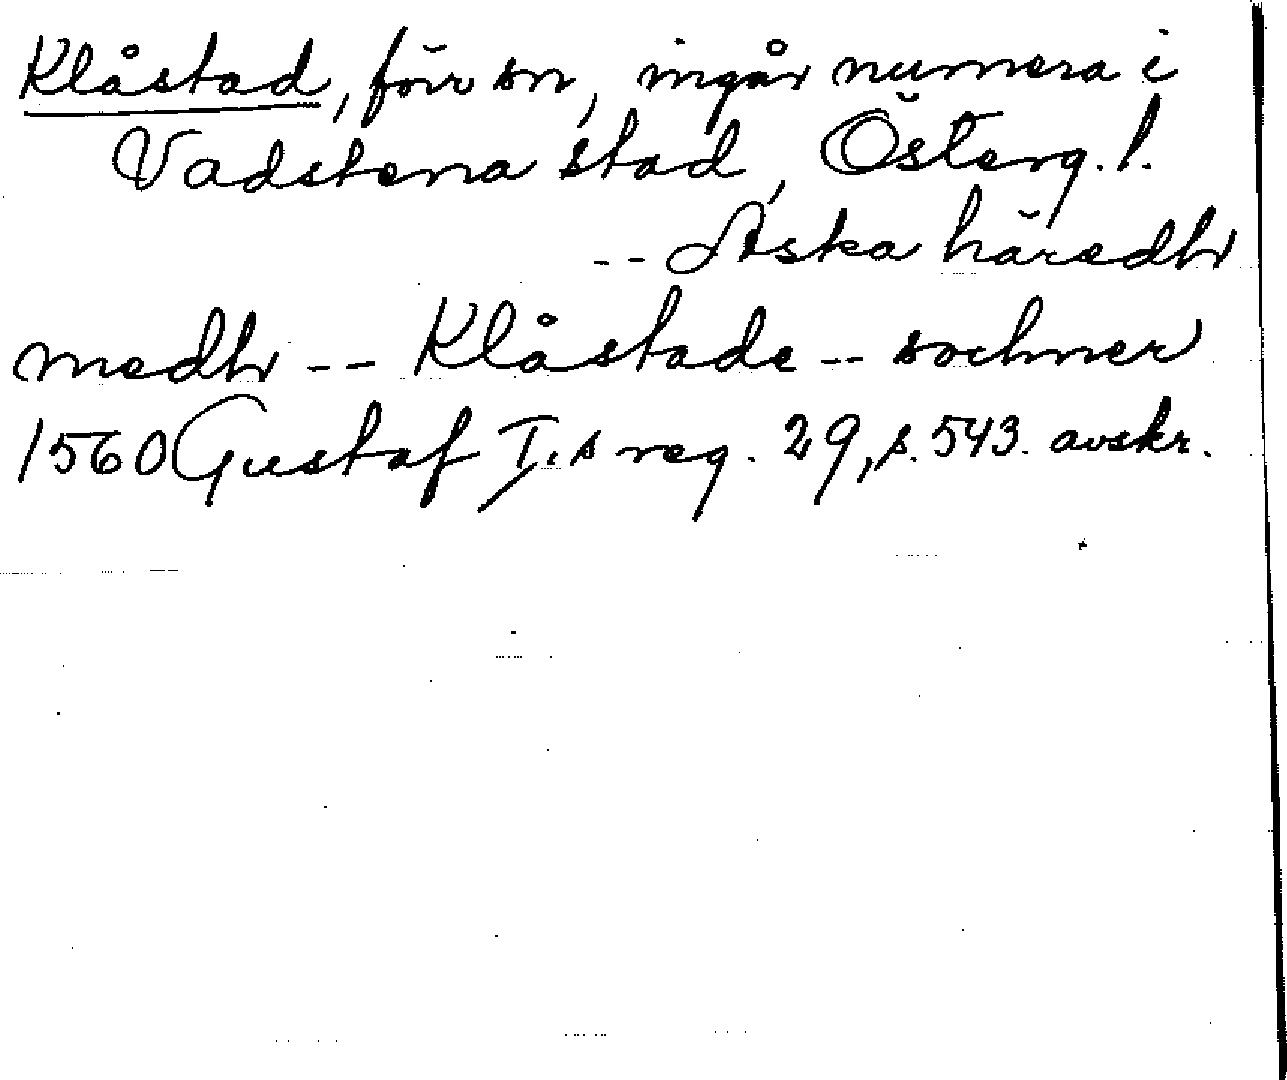 Klåstad, förr sn, ingår numera i
Vadstena stad, Österg. l.
-- Aska häredh
medh -- Klåstade -- sochner
1560 Gustaf I.s reg. 29, s. 543. avskr.